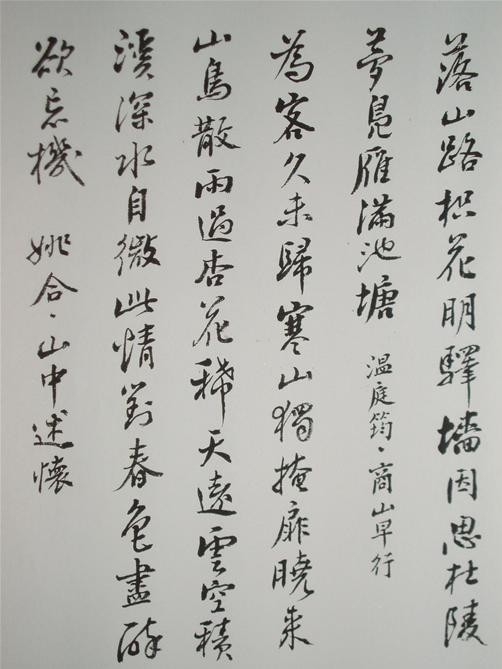 落山路枳花明驛墻因思杜陵
夢鳧雁滿池塘 温庭筠·商山早行
為客久未歸寒山獨掩扉曉来
山鳥散雨過杏花稀天遠雲空積
溪深水自微此情對春色盡醉
欲忘機 姚合·山中述懷